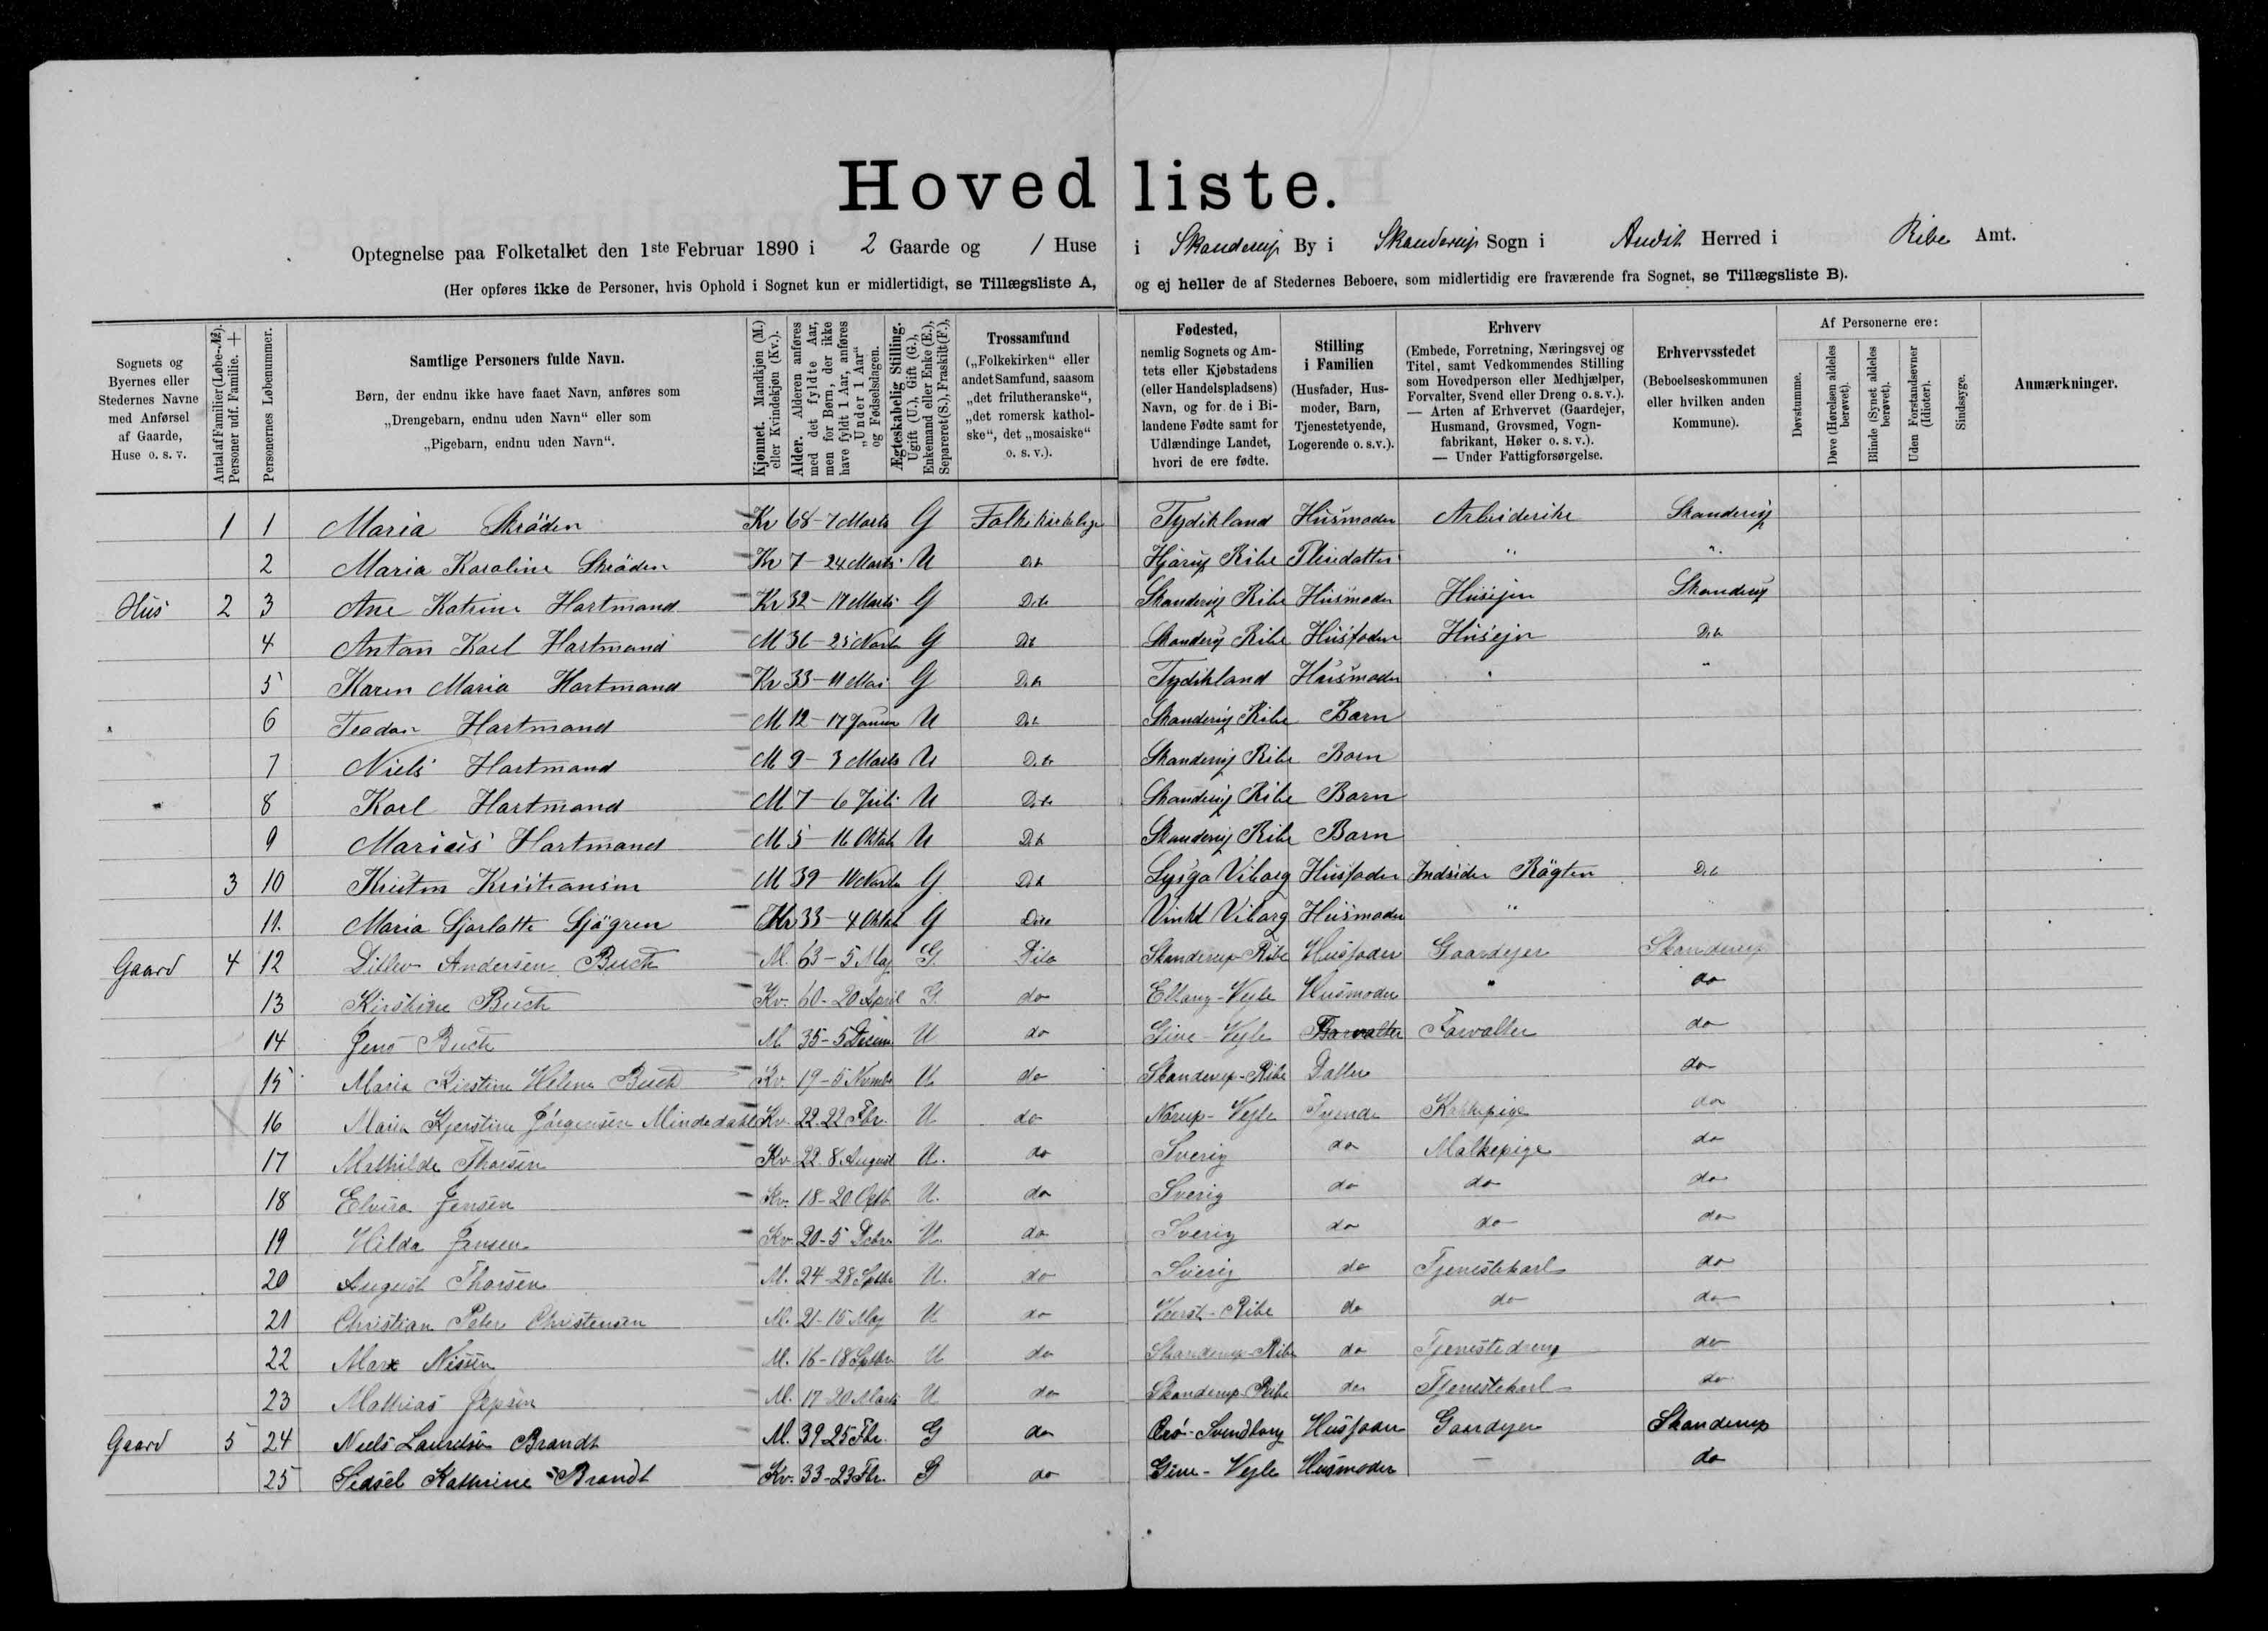 Hovedliste.
Optegnelse paa Folketallet den 1ste Februar 1890 i 2 Gaarde og 1 Huse i Skanderup By i Skanderup Sogn i Andst Herred i Ribe Amt.
(Her opføres ikke de Personer, hvis Ophold i Sognet kun er midlertidigt, se Tillægsliste A, og ej heller de af Stedernes Beboere, som midlertidig ere fraværende fra Sognet, se Tillægsliste B).
Sognets og Byernes eller Stedernes Navne med Anførsel af Gaarde, Huse o. s. v.
Antal af Familier (Løbe-№). Personer udf. Familie. +
Personernes Løbenummer.
Samtlige Personers fulde Navn.
Børn, der endnu ikke have faaet Navn, anføres som „Drengebarn, endnu uden Navn“ eller som „Pigebarn, endnu uden Navn“.
Kjønnet. Mandkjøn (M.) eller Kvindekjøn (Kv.).
Alder. Alderen anføres med det fyldte Aar, men for Børn, der ikke have fyldt 1 Aar, anføres „Under 1 Aar“ og Fødselsdagen.
Ægteskabelig Stilling. Ugift (U.), Gift (G.), Enkemand eller Enke (E.), Separeret (S.), Fraskilt (F.),
Trossamfund („Folkekirken“ eller andet Samfund, saasom „det frilutheranske“, „det romersk katholske“, det „mosaiske“ o. s. v.).
Fødested, nemlig Sognets og Amtets eller Kjøbstadens (eller Handelspladsens) Navn, og for de i Bilandene Fødte samt for Udlændinge Landet, hvori de ere fødte.
Stilling i Familien (Husfader, Husmoder, Barn, Tjenestetyende, Logerende o. s. v.).
Erhverv (Embede, Forretning, Næringsvej og Titel, samt Vedkommendes Stilling som Hovedperson eller Medhjælper, Forvalter, Svend eller Dreng o. s. v.). — Arten af Erhvervet (Gaardejer, Husmand, Grovsmed, Vognfabrikant, Høker o. s. v.). — Under Fattigforsørgelse.
Erhvervsstedet (Beboelseskommunen eller hvilken anden Kommune).
Af Personerne ere:
Døvstumme.
Døve (Hørelsen aldeles berøvet).
Blinde (Synet aldeles berøvet).
Uden Forstandsevner (Idioter).
Sindssyge.
Anmærkninger.
1 1 Maria Skröder Kv 68-7 Marts G Folkekirkelige Tydskland Husmoder Skanderup
2 Maria Karoline Skröder Kv 7-24 Marts U Dit Hjarup Ribe Pleiedatter " "
Hus 2 3 Ane Katrine Hartmand Kv 32-17 Marts G Dite Skanderup Ribe Husmoder Husejer Skanderup
4 Anton Karl Hartmand M 36-25 G Dit Skanderup Ribe Husfader Husejer Dit
5 Karen Maria Hartmand Kv 33-11 Mai G Dit Tydskland Husmoder " "
6 Teodor Hartmand M 12-17 Januar U Dit Skanderup Ribe Barn
7 Niels Hartmand M 9-3 Marts U Dit Skanderup Ribe Barn
8 Karl Hartmand M 7-6 Juli U Dit Skanderup Ribe Barn
9 Marius Hartmand M 5-16 Oktob U Dit Skanderup Ribe Barn
3 10 Kristen Kristiansen M 39-10 G Dit Lysgo Viborg Husfader Indsider Rögter Dit
11. Maria Sjarlotte Sjögren Kv 33-4 Oktob G Dite Viborg Husmoder "
Gaard 4 12 Ditlev Andersen Buch M. 63-5 Maj G. Dito Skanderup-Ribe Husfader Gaardejer Skanderup
13 Kirstine Buch Kv. 60-20 April G. do Eltang-Vejle Husmoder " do
14 Jens Buch M 35-5 Decem U do Give-Vejle Forvalter Forvalter do
15 Maria Kirstine Helene Buch Kv. 19-5 Novmbr U. do Skanderup-Ribe Datter do
16 Maria Kjerstine Jörgensen Mindedahl Kv. 22-22 Fbr. U do Nörup-Vejle Tyende Kokkepige do
17 Mathilde Thorsen Kv 22-8 August U. do Sverig do Malkepige do
18 Elvira Jensen Kv. 18-20 Octb U. do Sverig do do do
19 Hilda Jensen Kv 20-5 U. do Sverig do do do
20 August Thorsen M. 24-28 Sptbr U. do Sverig do Tjenestekarl do
21 Christian Peter Christensen M. 21-15 Maj U do Verst-Ribe do do do
22 Marx Nissen M. 16-18 Sptbr U do Skanderup-Ribe do Tjenestedreng do
23 Mathias Jepsen M. 17-20 Marts U do Skanderup-Ribe do Tjenestekarl do
Gaard 5 24 Niels Lauridsen Brandt M. 39-25 Fbr. G do Svendborg Husfader Gaardejer Skanderup
25 Sidsel Kathrine Brandt Kv. 33-23 Fbr. G do Give-Vejle Husmoder — do